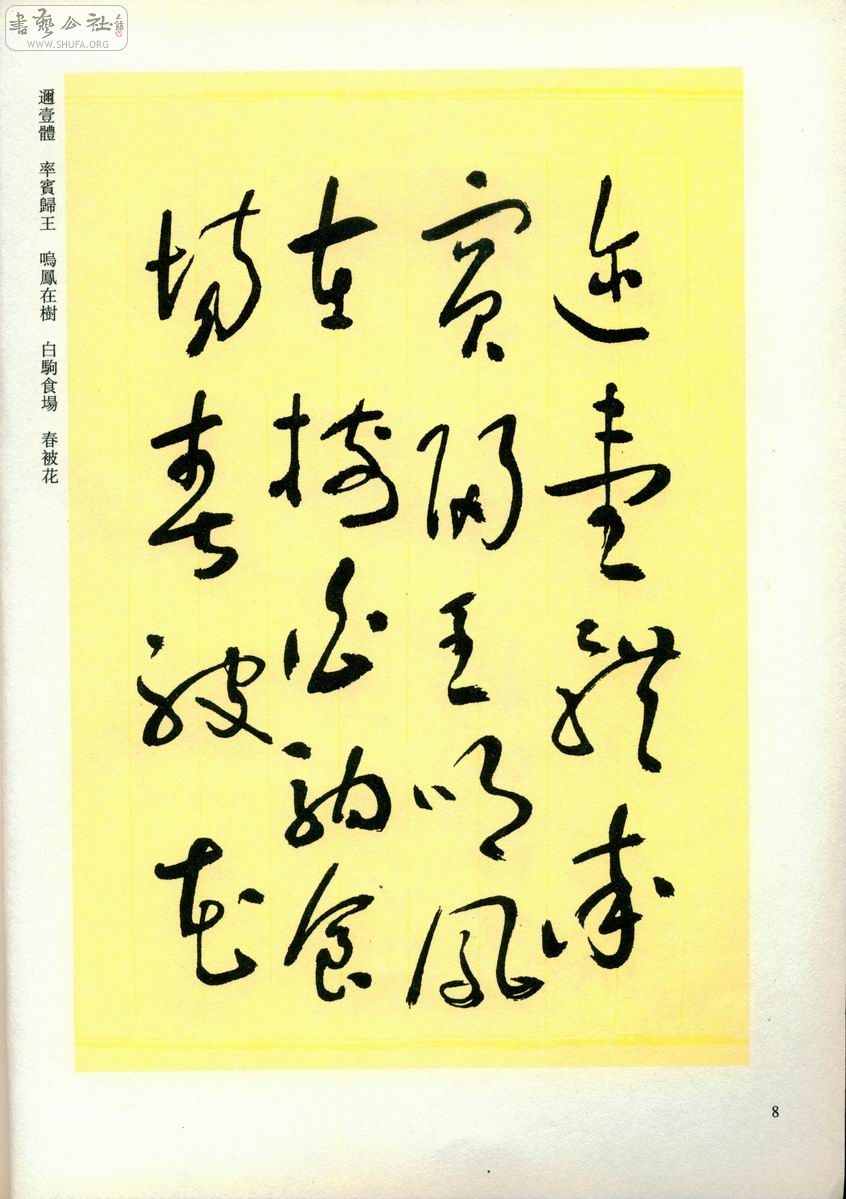 書藝公社
WWW.SHUFA.ORG
迩壹體率
賓歸王鳴鳳
在樹白駒食
場春被花
邇壹體　率賓歸王　嗚鳳在樹　白駒食場　春被花
8